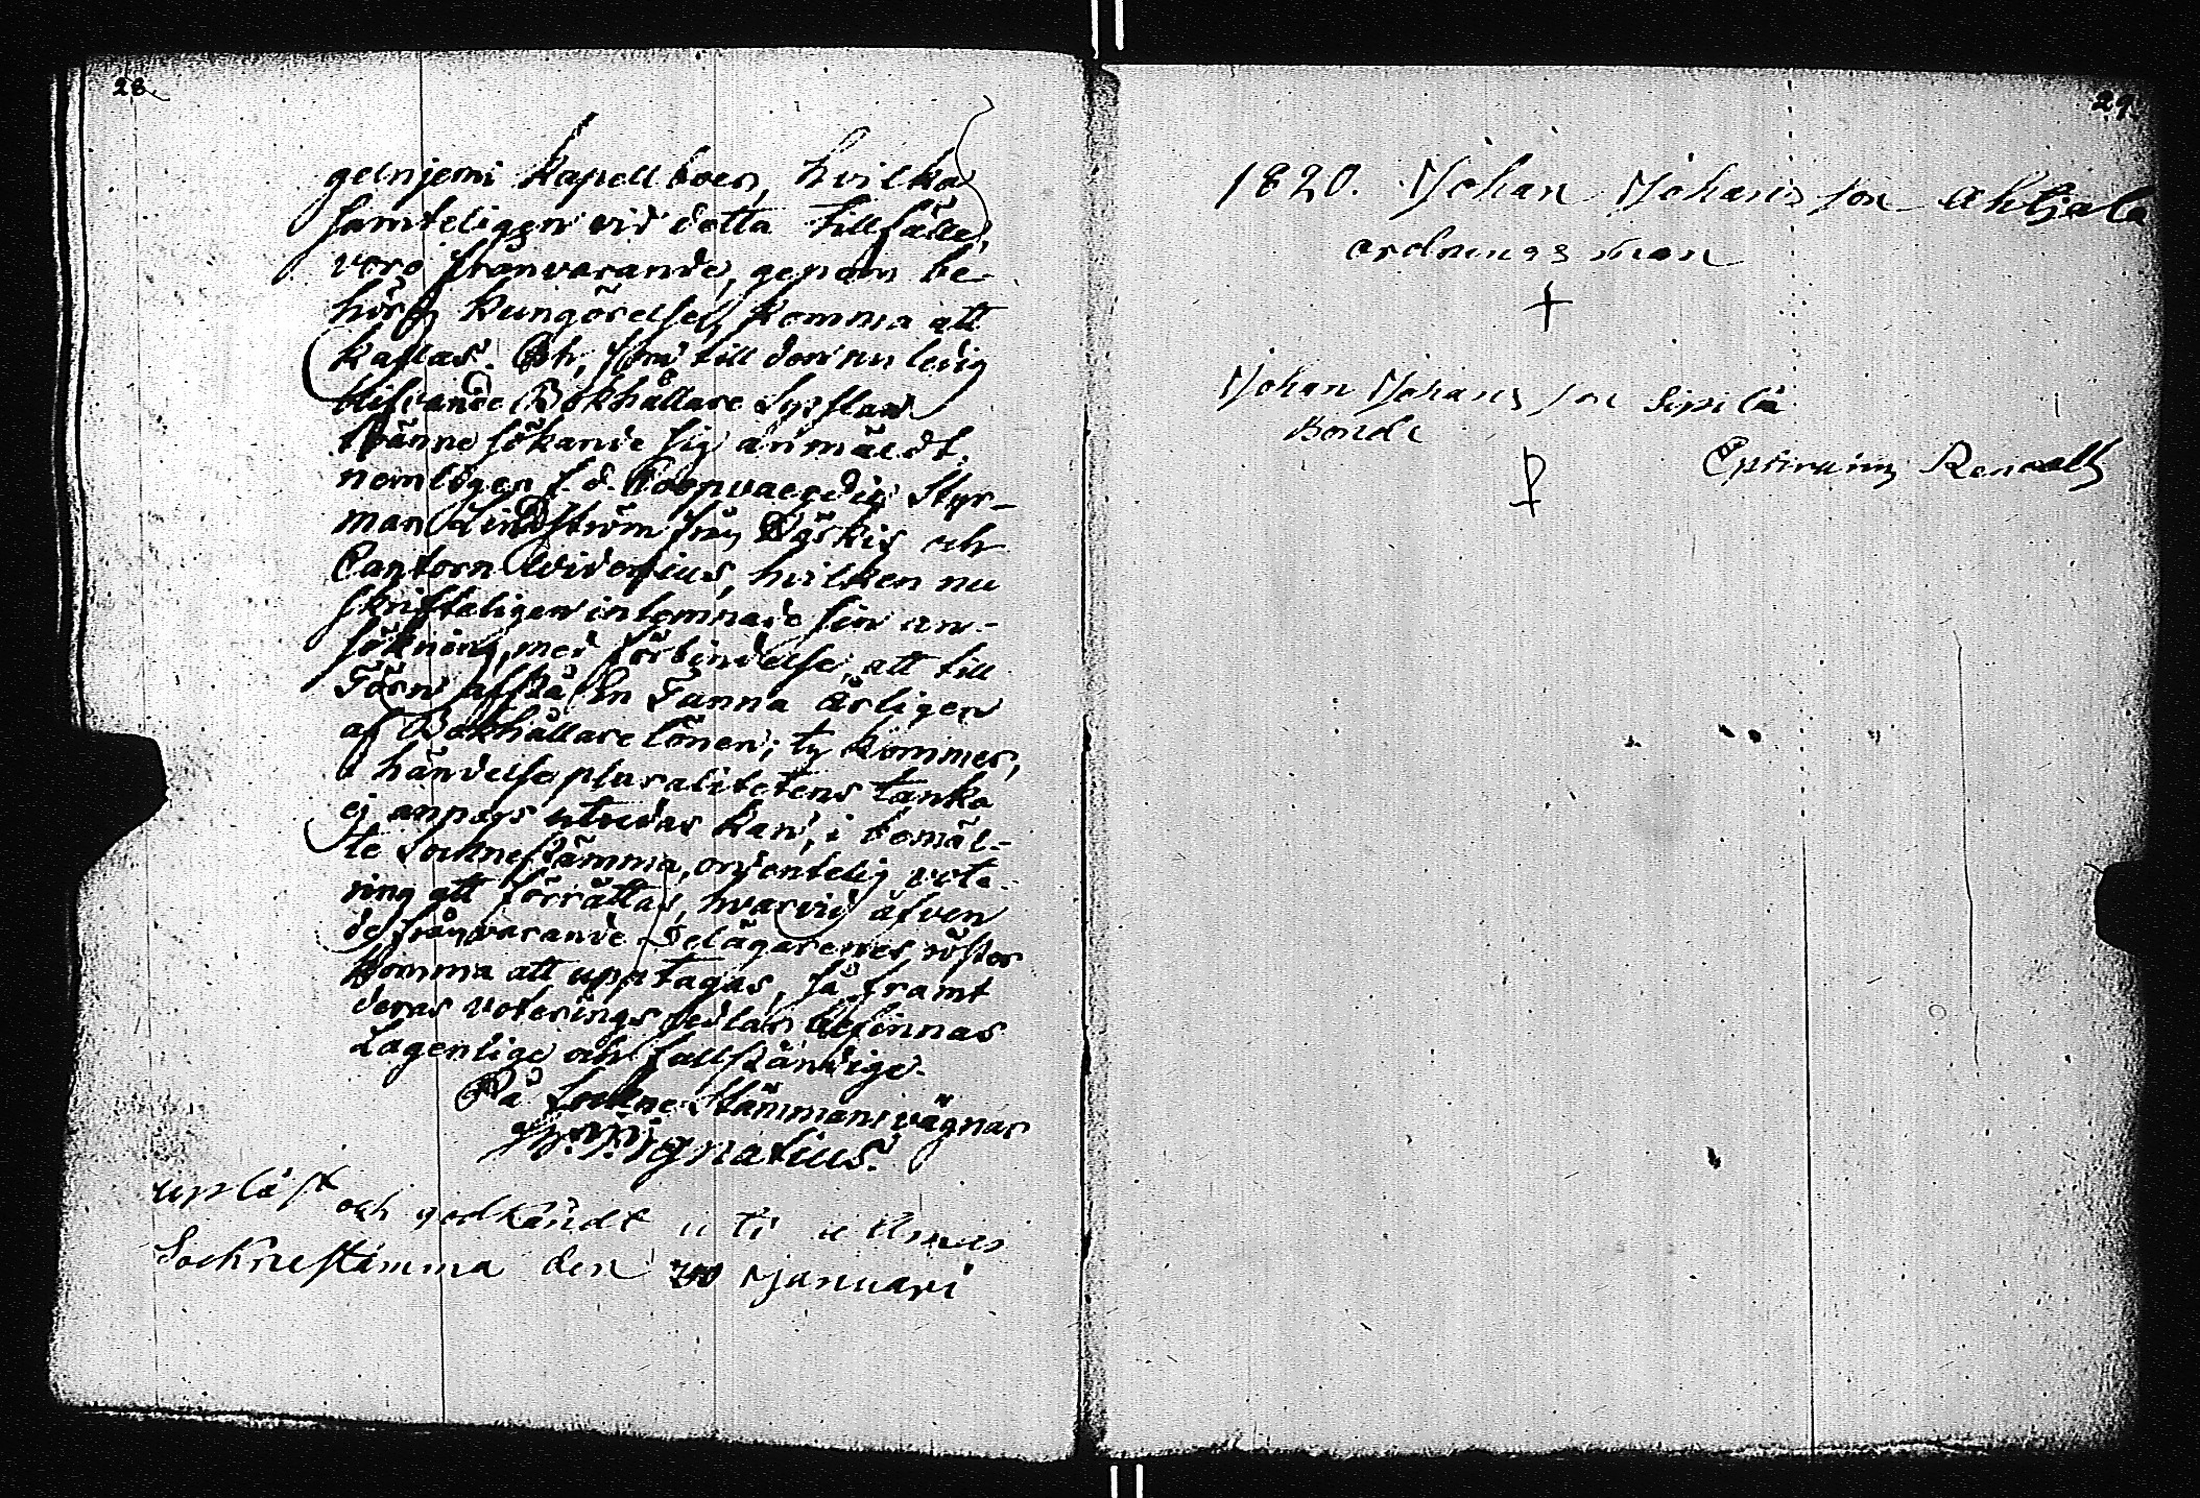 28.
gelnjemi Kapellboer, hvilka
samteligen vid detta tillfälle,
voro frånvarande, genom be-
hörig kungörelse, komma att
kallas. Och, som till den nu ledig
blifvande Bokhållare Sysslan
tvänne sökande sig anmäldt,
nemligen f. d. Coopvaerdie Styr-
man Lindström från Säkis och
Cantorn Widenius, hvilken nu
skrifteligen inlemnade sin an-
sökning, med förbindelse, att till
Törn afstå En Tunna Årligen
af Bokhållare lönen; ty kommer,
i händelse pluralitetens tanka
ej annars utredas kan, i bemäl-
te Sockne stämma, ordentelig vote-
ring att förrättas, hvarvid äfven
de frånvarande Delägarenes röster
komma att upptagas, så framt
deras voterings sedlar befinnas
Lagenlige och fullständige.
På Sockne Stämmans vägnar
Ignatius.
upläst och godkändt uti allmän
Socknestämma den 30 Januari
29.
1820. Johan Johansson Ahtjala
ordningsman
Johan Johansson Sipilä
Bonde
Ephraim Renvall